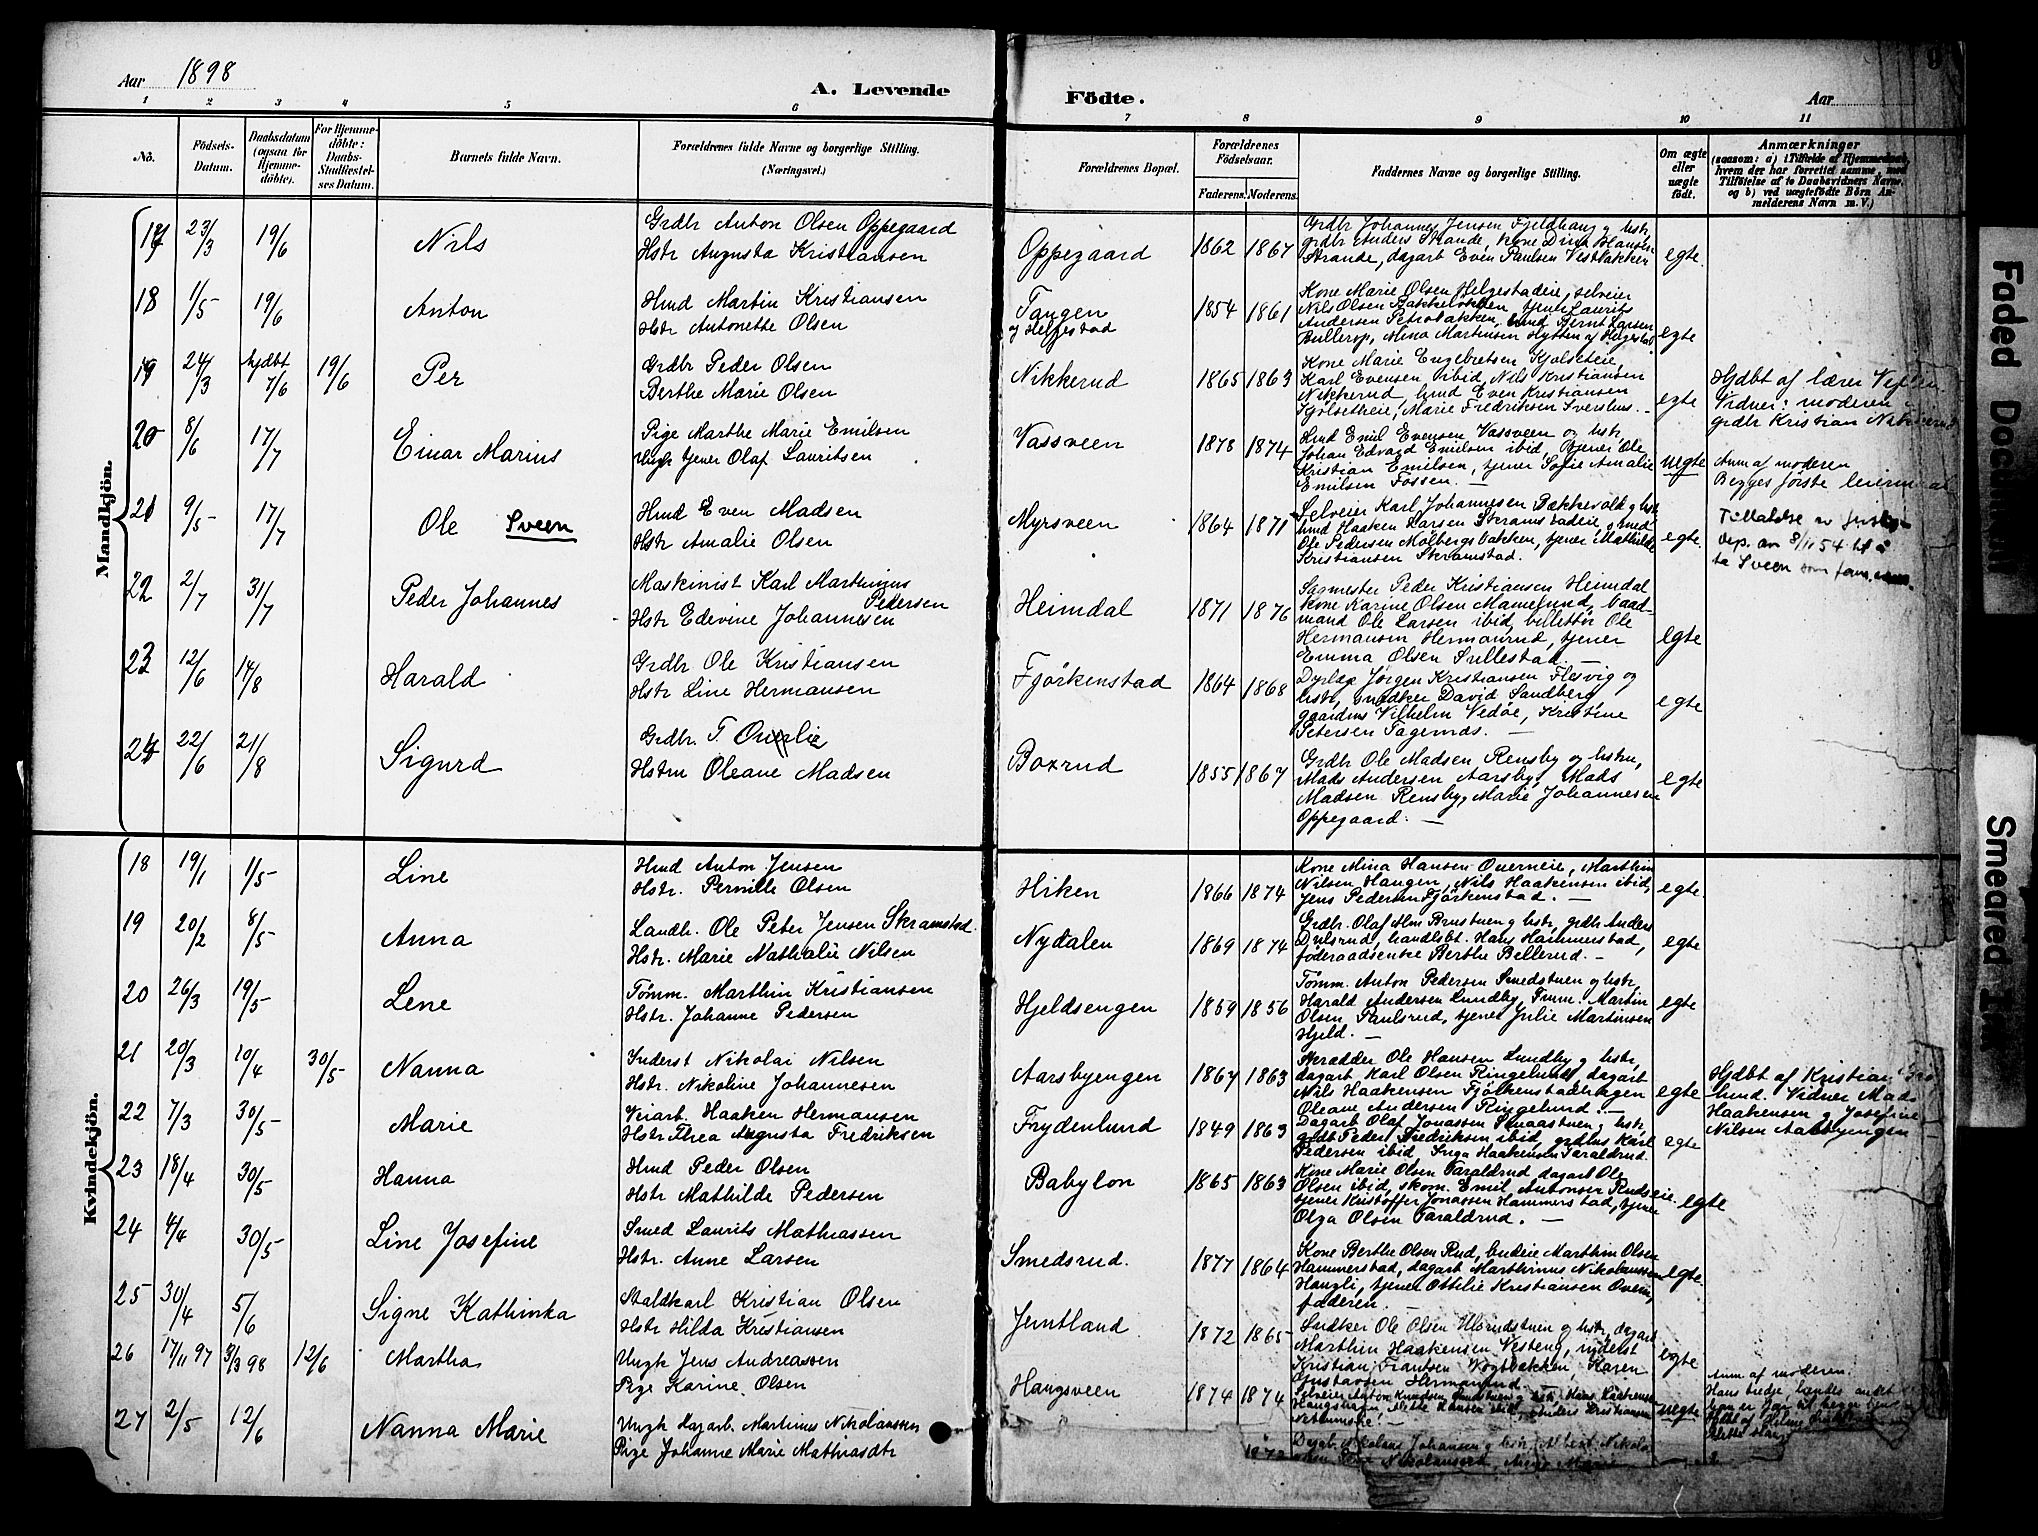 Aar 1898
A. Levende
Födte.
Aar
9
1 2 3 4 5 6 7 8 9 10 11
No.
Födsels-Datum.
Daabsdatum (ogsaa for Hjemme-döbte).
For Hjemme-döbte: Daabs-Stadfæstel-ses Datum.
Barnets fulde Navn.
Forældrenes fulde Navne og borgerlige Stilling.
(Næringsvei.)
Forældrenes Bopæl.
Forældrenes Födselsaar.
Faderens. Moderens.
Faddernes Navne og borgerlige Stilling.
Om ægte eller uægte födt.
Anmærkninger
(saasom: a) i Tilfælde af Hjemmedaab,
hvem der har forrettet samme, med
Tilföielse af to Daabsvidners Navne,
og b) ved uægtefödte Börn An-
melderens Navn m. V.)
Mandkjön.
17 23/3 19/6 Nils
Grdbr Anton Olsen Oppegaard
Hstr Augusta Kristiansen
Oppegaard 1862 1867
Grdbr Johannes Jensen Fjeldhaug og hstr,
grdbr Anders Strande, kone Dina Hansen
Strande, dagarb Even Paulsen Vestbakken
egte.
18 1/5 19/6 Anton
Hmd Martin Kristiansen
Hstr Antonette Olsen
Tangen
og Helgestad
1854 1861
Kone Marie Olsen Helgestadeie, selveier
Nils Olsen Bakkeløkken, tjener Laurits
Andersen Petrobakken, hmd Bernt Larsen
Bullerop, Mina Martinsen Hytten af Helgestad
egte
19 24/3 hjdbt 7/6 19/6 Per
Grdbr Peder Olsen
Berthe Marie Olsen
Nikkerud 1865 1863
Kone Marie Engebretsen Kjolseteie,
Karl Evensen ibid, Nils Kristiansen
Nikkerud, hmd Even Kristiansen
Kjolsetheie, Marie Fredriksen Svershus. -
egte
Hjdbt af lærer
Vidner: moderen
grdbr Kristian
20 8/6 17/7 Einar Marius
Pige Marthe Marie Emilsen
Ungk tjener Olaf Lauritsen
Vassveen 1878 1874
Hmd Emil Evensen Vassveen og hstr,
Johan Edvard Emilsen ibid, tjener Ole
Kristian Emilsen, tjener Sofie Amalie
Emilsen Fossen. -
uegte
Anm af moderen
Begges første
21 9/5 17/7 Ole Sveen
Hmd Even Madsen
Hstr Amalie Olsen
Myrsveen 1864 1871
Selveier Karl Johannesen Bækkevold og hstr
hmd Haaken Larsen Skramstadeie, smed
Ole Pedersen Molbergsbakken, tjener Mathilde
Kristiansen Skramstad.
egte.
Tillatelse av
dep. av 8/11 54 til å
ta Sveen som fam.navn.
22 2/7 31/7 Peder Johannes
Maskinist Karl Marthinius
Pedersen
Hstr Edevine Johannesen
Heimdal 1871 1876
Sagmester Peder Kristiansen Heimdal
kone Karine Olsen
mand Ole Larsen ibid, billettør Ole
Hermansen Hermanrud, tjener
Emma Olsen Sullestad.
egte
23 12/6 14/8 Harald
Grdbr Ole Kristiansen
Hstr Line Hermansen
Fjörkenstad 1864 1868
Dyrlæge Jörgen Kristiansen Flesvig og
hstr, snedker David Sandberg,
gaardens Vilhelm Vedøe, Kristine
Petersen Fagernæs. -
egte
24 22/6 21/8 Sigurd
Grdbr. T. Ouerlie
Hstru Oleane Madsen
Boxrud 1855 1867
Grdbr Ole Madsen Rensby og hstru,
Mads Andersen Aarsby, Mads
Madsen Rensby, Marie Johannesen
Oppegaard. -
egte
Kvindekjön.
18 19/1 1/5 Line
Hmd Anton Jensen
Hstr. Pernille Olsen
Hiken 1866 1874
Kone Mina Hansen Ouerneie, Marthin
Nilsen Haugen, Nils Haakensen ibid,
Jens Pedersen Fjörkenstad. -
egte
19 20/2 8/5 Anna
Landh. Ole Peter Jensen Skramstad
Hstr. Marie Nathalie Nilsen
Nydalen 1869 1874
Grdbr. Olaf Brustuen og hstr, grdbr Anders
Dulsrud, handlsbt. Hans Hammerstad,
føderaadsenke Berthe Bellerud. -
egte
20 26/3 19/5 Lene
Tömm. Marthin Kristiansen
Hstr. Johanne Pedersen
Hjeldsengen 1859 1856
Tömm. Anton Pedersen Smedstuen og hstr,
Harald Andersen Lundby, Tmm. Martin
Olsen Paulsrud, tjener Julie Martinsen
Hjeld. -
egte
21 20/3 10/4 30/5 Nanna
Inderst Nikolai Nilsen
Hstr. Nikoline Johannesen
Aarsbyengen 1867 1863
Skrædder Ole Hansen Lundby og hstr,
dagarb Karl Olsen Ringelund, dagarb
Nils Haakensen Fjölkenstadhagen
Oleane Andersen Ringelund. -
egte
Hjdbt af Kristian
lund. Vidner Mads
Haakensen og Josefine
Nilsen Aarsbyengen
22 7/3 30/5 Marie
Veiarb. Haaken Hermansen
Hstr Thea Augusta Fredriksen
Frydenlund 1849 1863
Dagarb Olaf Jonassen Snaastuen og hstr,
grdbr Peder Fredriksen ibid, Karl
Pedersen ibid, Inga Haakensen Taraldrud.
egte
23 18/4 30/5 Hanna
Hmd Peder Olsen
Hstr Mathilde Pedersen
Babylon 1865 1863
Kone Marie Olsen Taraldrud, dagarb Ole
Olsen ibid, skom. Emil Antonsen Rudseie
tjener Kristoffer Jonassen Hammerstad, tjener
Olga Olsen Taraldrud. -
egte
24 4/4 30/5 Line Josefine
Smed Laurits Mathiassen
Hstr. Anne Larsen
Smedsrud. 1877 1864
Kone Berthe Olsen Rud, Marthin Olsen
Hammerstad, dagarb Marthinus Nikolaussen
Haugli, tjener Ottilie Kristiansen Ouren,
faderen. -
egte.
25 30/4 5/6 Signe Kathinka
Staldkarl Kristian Olsen
Hstr Hilda Kristiansen
Jemtland 1872 1865
Snedker Ole Olsen Ulsrudstuen og hstr, dagarb
Marthin Haakensen Vesteng, inderst
Kristian Frantsen Vogtbakken, Karen
Gustavsen Hermanrud.
egte
26 17/11 97 3/3 98 12/6 Martha
Ungk Jens Andreassen
Pige Karine Olsen
Haugsveen 1874 1874
Selveier Anton Knudsen og hstr, Hans Haakensen
Haugshagen, Mette Hansen ibid, Anders Kristiansen
uegte
Anm af moderen
Hans tredje, hendes andet
27 2/5 12/6 Nanna Marie
Ungk dagarb. Martinus Nikolaussen
Pige Johanne Marie Mathiasdtr
1872
Dagb. Nikolaus Johansen og hstr, Albert Nikolai
Faded Document
Smeared Ink